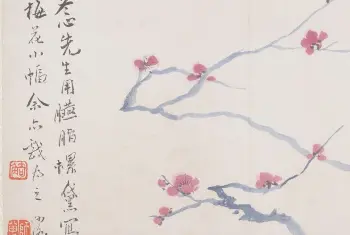 先生用臙脂螺黛寫
梅花小幅余亦戲爲之